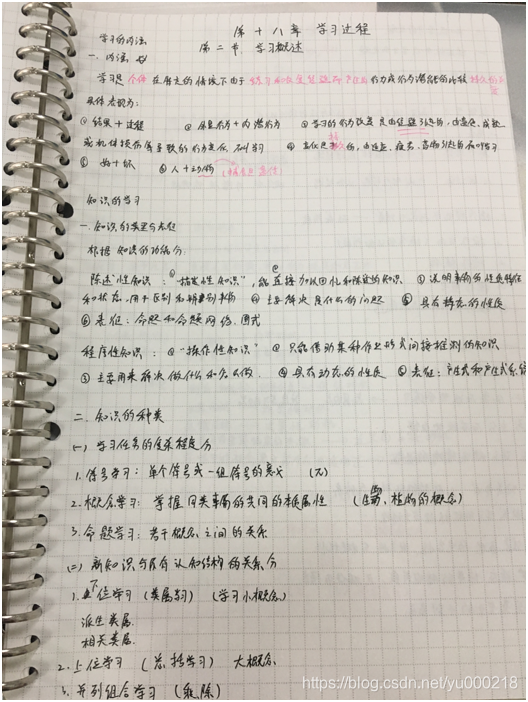 第十八章 学习过程
学习的内涵 第二节 学习概述
一、内涵
学习是个体在特定的情境下由于练习或反复经验而产生的行为或行为潜能的比较持久的改变
具体表现为:
① 结果+过程 ② 外显行为+内潜行为 ③ 学习的行为改变是由经验引起的,由遗传、成熟
或机体损伤等导致的行为变化,不叫学习 ④ 变化是持久的,由适应、疲劳、药物引起的不叫学习
⑤ 好+坏 ⑥ 人+动物
知识的学习
一、知识的类型与表征
根据知识的功能分:
陈述性知识:①“描述性知识”,能直接加以回忆和陈述的知识 ② 说明事物的性质特征
和状态,用于区别和辨别事物 ③ 主要解决是什么的问题 ④ 具有静态的性质
⑤ 表征:命题和命题网络、图式
程序性知识:①“操作性知识” ② 只能借助某种作业形式间接推测的知识
③ 主要用来解决做什么和怎么做 ④ 具有动态的性质 ⑤ 表征:产生式和产生式系统
二、知识的种类
(一) 学习任务的复杂程度分
1. 符号学习:单个符号或一组符号的意义
2. 概念学习:掌握同类事物的共同的本质属性 (动、植物的概念)
3. 命题学习:若干概念之间的关系
(二) 新知识与原有认知结构的关系分
1. 下位学习 (类属学习) (学习小概念)
派生类属
相关类属
2. 上位学习 (总括学习) 大概念
3. 并列组合学习 (乘、除)
https://blog.csdn.net/yu000218